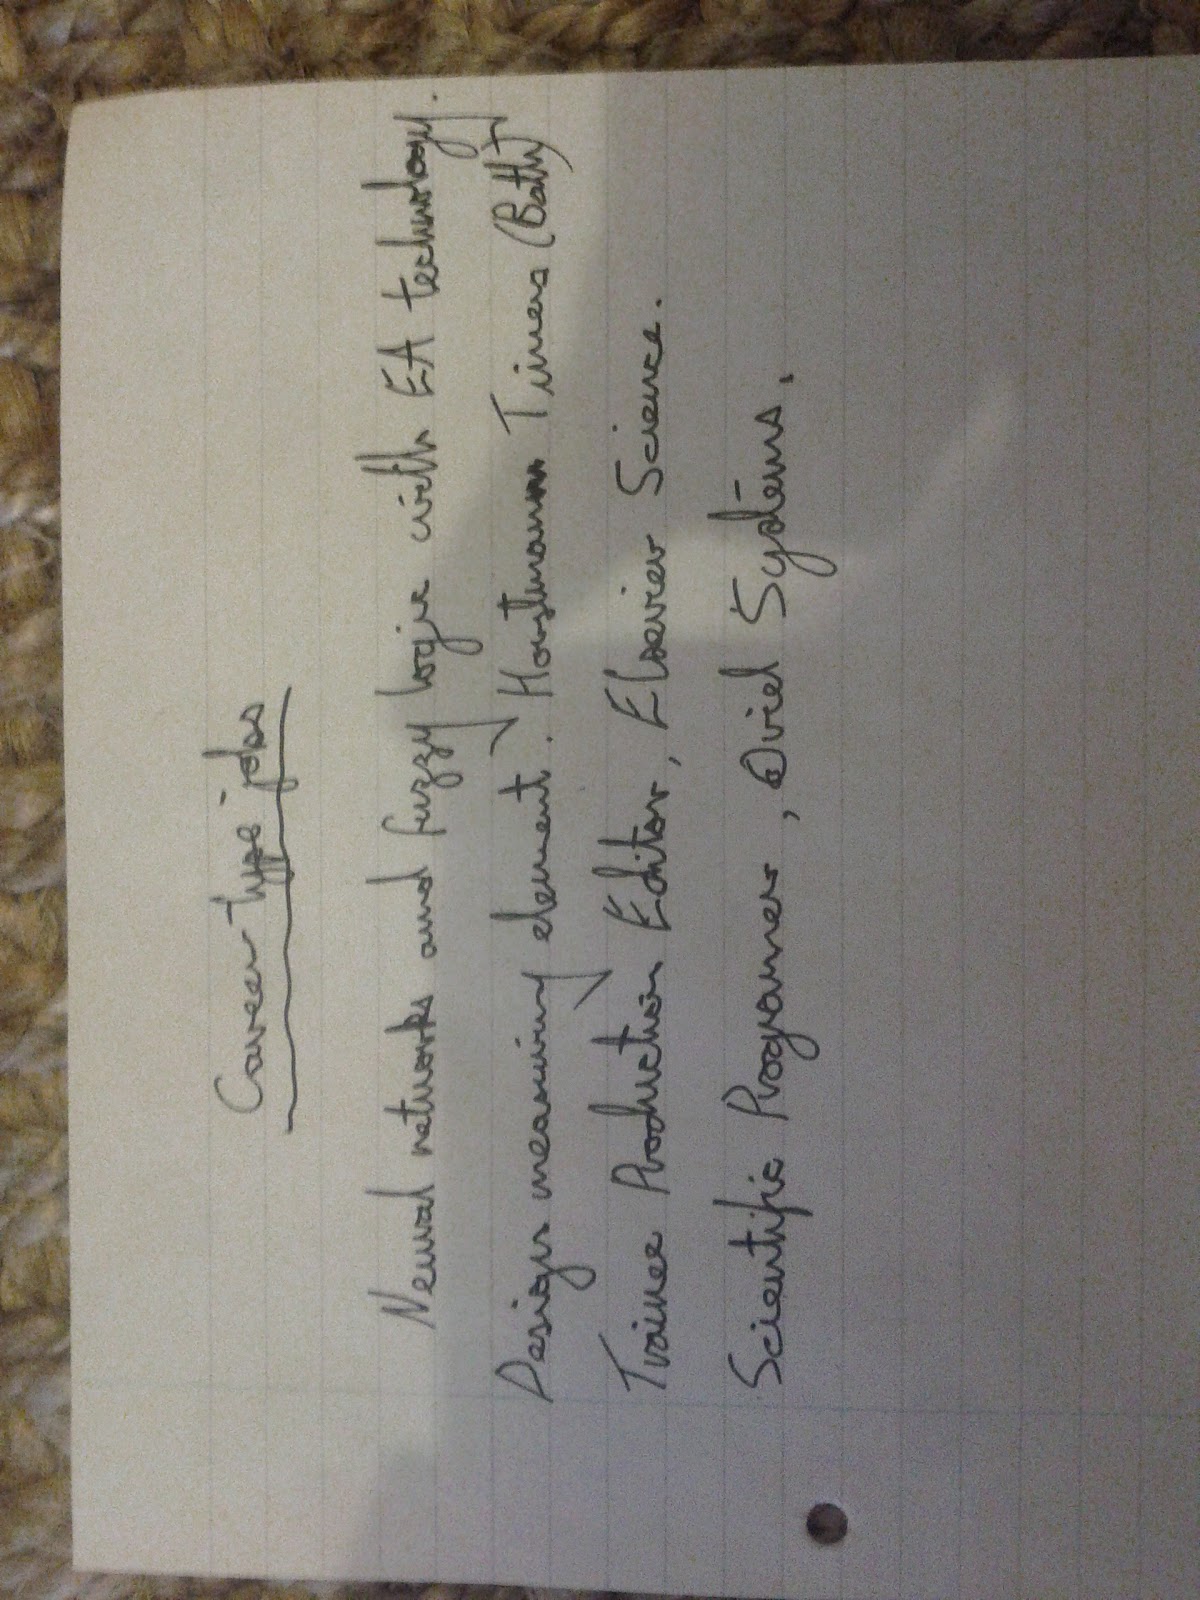 Career type jobs
Neural networks and fuzzy logic with EA technology.
Design measuring element. Horstmann Timers (Bath)
Trainee Production Editor, Elsevier Science.
Scientific Programer, Oviel Systems.